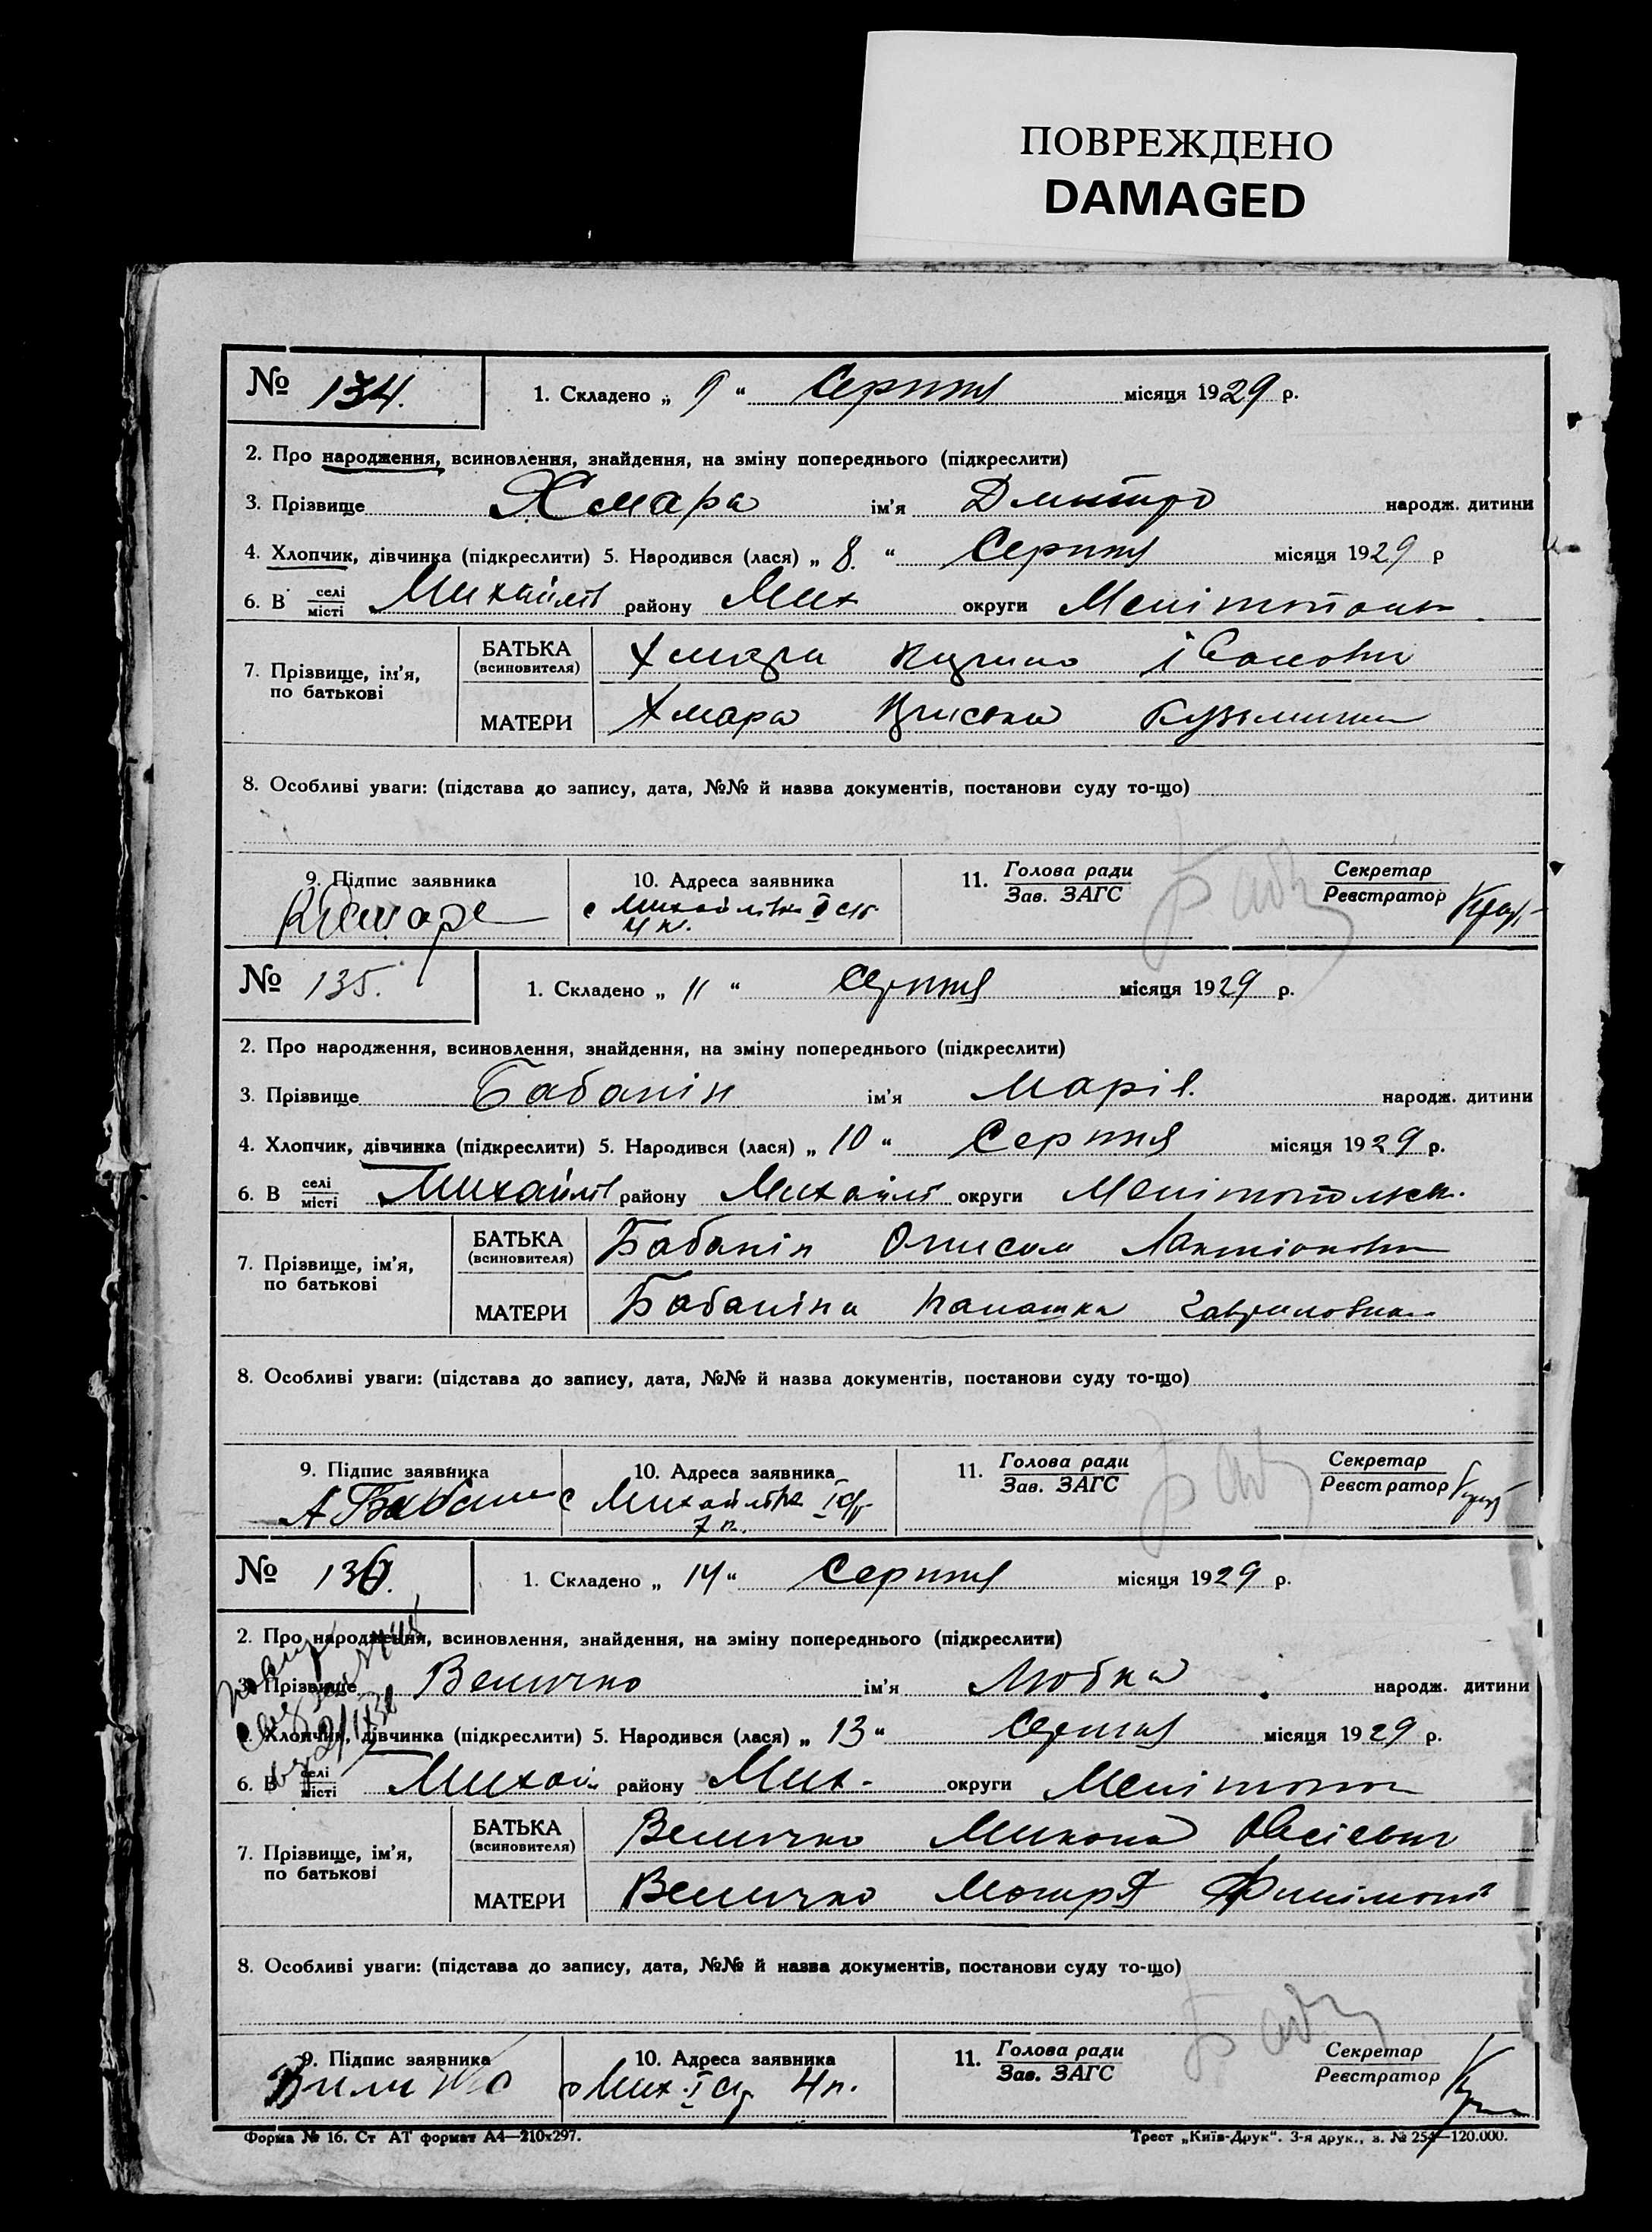 ПОВРЕЖДЕНО
DAMAGED
№ 134. 1. Складено „ 9 “ Серпня місяця 1929 р.
2. Про народження, всиновлення, знайдення, на зміну попереднього (підкреслити)
3. Прізвище Хмара ім'я Дмитро народж. дитини
4. Хлопчик, дівчинка (підкреслити) 5. Народився (лася) „ 8. “ Серпня місяця 1929 р
6. В селі місті Михайлів району Мих округи Мелітопольс
7. Прізвище, ім'я, по батькові
БАТЬКА (всиновителя) Хмара Кирило Іванович
МАТЕРИ Хмара Кузьмин
8. Особливі уваги: (підстава до запису, дата, №№ й назва документів, постанови суду то-що)
9. Підпис заявника 10. Адреса заявника 11. Голова ради Зав. ЗАГС Секретар Реєстратор
КХмара с Михайлівка І
4 п.
№ 135. 1. Складено „ 11 “ Серпня місяця 1929 р.
2. Про народження, всиновлення, знайдення, на зміну попереднього (підкреслити)
3. Прізвище Бабанін ім'я Марія. народж. дитини
4. Хлопчик, дівчинка (підкреслити) 5. Народився (лася) „ 10 “ Серпня місяця 1929 р.
6. В селі місті Михайлів району Михайлів округи Мелітопольськ.
7. Прізвище, ім'я, по батькові
БАТЬКА (всиновителя) Бабанін Онисим Лактіонович
МАТЕРИ Бабаніна Палашка Гавриловна
8. Особливі уваги: (підстава до запису, дата, №№ й назва документів, постанови суду то-що)
9. Підпис заявника 10. Адреса заявника 11. Голова ради Зав. ЗАГС Секретар Реєстратор
А Бабанин с Михайлівка І
7 п.
№ 136. 1. Складено „ 14 “ Серпня місяця 1929 р.
2. Про народження, всиновлення, знайдення, на зміну попереднього (підкреслити)
3. Прізвище Величко ім'я Любка народж. дитини
4. Хлопчик, дівчинка (підкреслити) 5. Народився (лася) „ 13 “ Серпня місяця 1929 р.
6. В селі місті Михай району Мих. округи Мелітопол
7. Прізвище, ім'я, по батькові
БАТЬКА (всиновителя) Величко Микола Овсієвич
МАТЕРИ Величко Мотря Филімонів
8. Особливі уваги: (підстава до запису, дата, №№ й назва документів, постанови суду то-що)
9. Підпис заявника 10. Адреса заявника 11. Голова ради Зав. ЗАГС Секретар Реєстратор
Виличко Мих. І 4 п.
Форма № 16. Ст АТ формат А4—210х297. Трест „Київ-Друк“. 3-я друк., з. № 254—120.000.